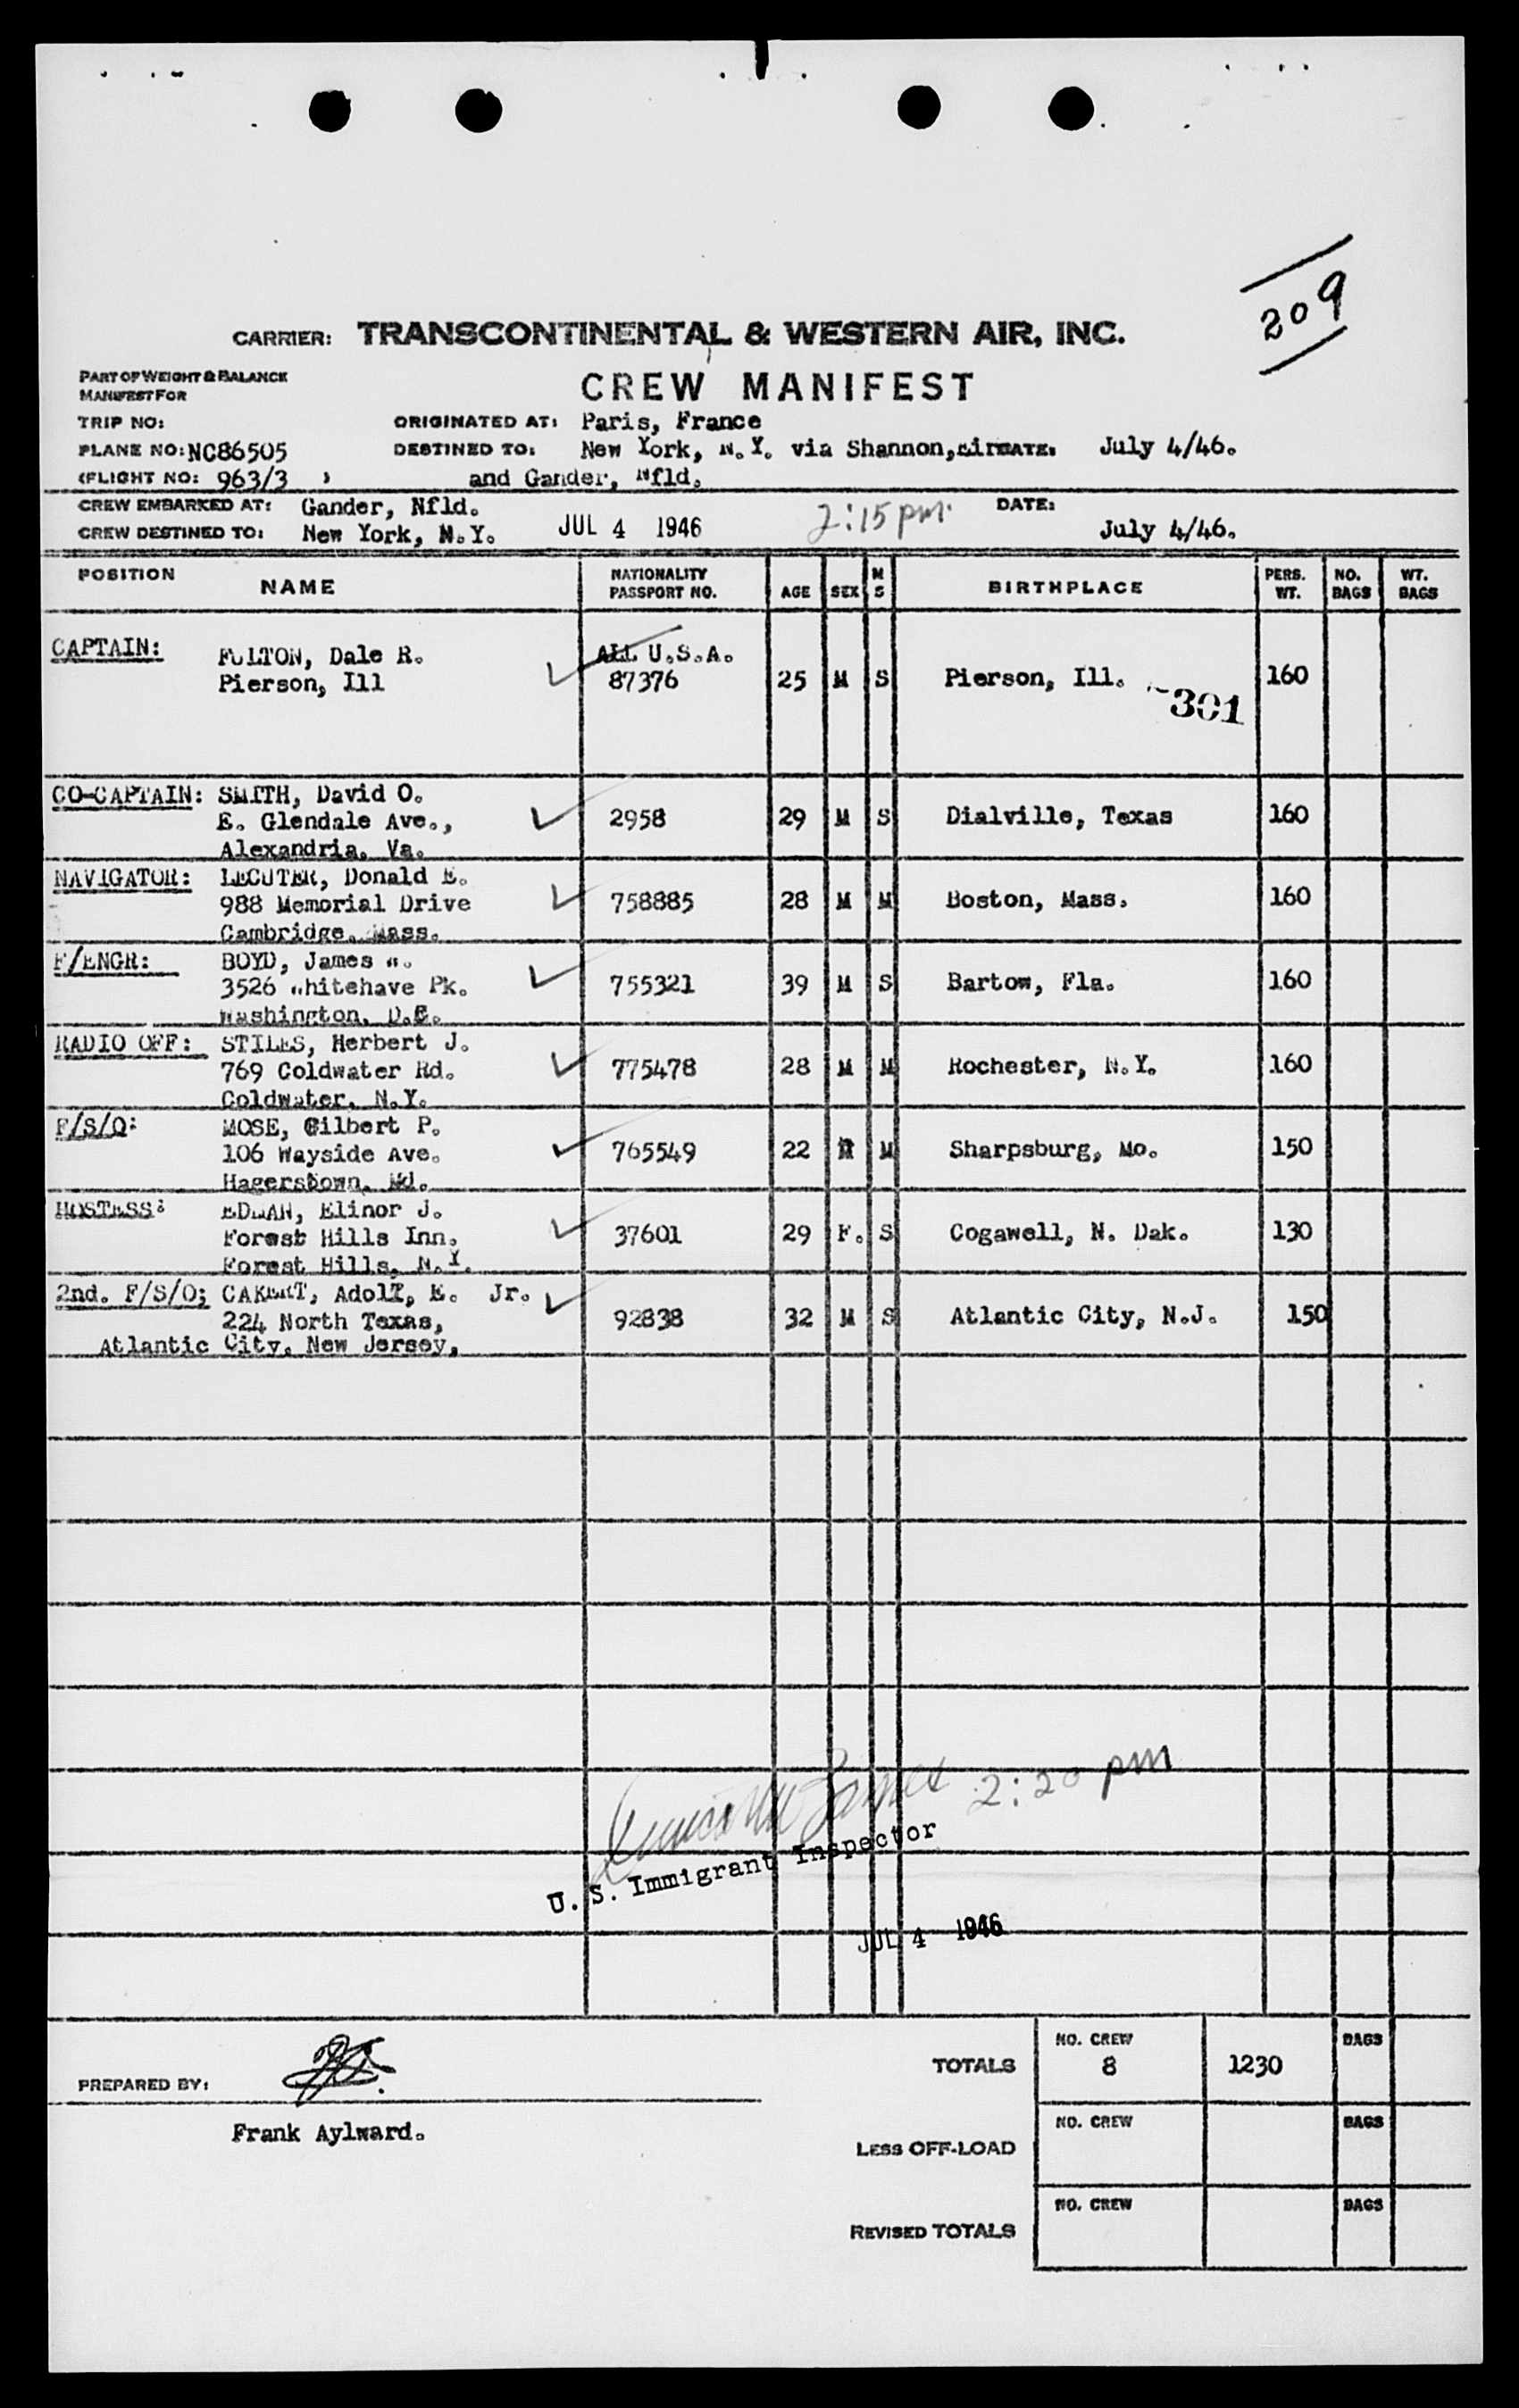 209
CARRIER: TRANSCONTINENTAL & WESTERN AIR, INC.
PART OF WEIGHT & BALANCE
MANIFEST FOR
CREW MANIFEST
TRIP NO: ORIGINATED AT: Paris, France
PLANE NO: NC86505 DESTINED TO: New York, N.Y. via Shannon, DATE: July 4/46.
(FLIGHT NO: 963/3 ) and Gander, Nfld.
CREW EMBARKED AT: Gander, Nfld. DATE:
CREW DESTINED TO: New York, N.Y. JUL 4 1946 2:15 pm. July 4/46.
POSITION NAME NATIONALITY PASSPORT NO. AGE SEX M S BIRTHPLACE PERS. WT. NO. BAGS WT. BAGS
CAPTAIN: FULTON, Dale R. ALL U.S.A.
Pierson, Ill 87376 25 M S Pierson, Ill. 160
301
CO-CAPTAIN: SMITH, David O.
E. Glendale Ave., 2958 29 M S Dialville, Texas 160
Alexandria, Va.
NAVIGATOR: LECUTER, Donald E.
988 Memorial Drive 758885 28 M M Boston, Mass. 160
Cambridge, Mass.
F/ENGR: BOYD, James
3526 Whitehave Pk. 755321 39 M S Bartow, Fla. 160
Washington, D.C.
RADIO OFF: STILES, Herbert J.
769 Coldwater Rd. 775478 28 M M Rochester, N.Y. 160
Coldwater, N.Y.
F/S/O: MOSE, Gilbert P.
106 Wayside Ave. 765549 22 M M Sharpsburg, Mo. 150
Hagerstown, Md.
HOSTESS: Elinor J.
Forest Hills Inn, 37601 29 F. S Cogawell, N. Dak. 130
Forest Hills, N.Y.
2nd. F/S/O; Adolf, E. Jr.
224 North Texas, 92838 32 M S Atlantic City, N.J. 150
Atlantic City, New Jersey,
2:20 pm
U.S. Immigrant Inspector
JUL 4 1946
PREPARED BY:
Frank Aylward.
TOTALS NO. CREW 8 1230 BAGS
LESS OFF-LOAD NO. CREW BAGS
REVISED TOTALS NO. CREW BAGS